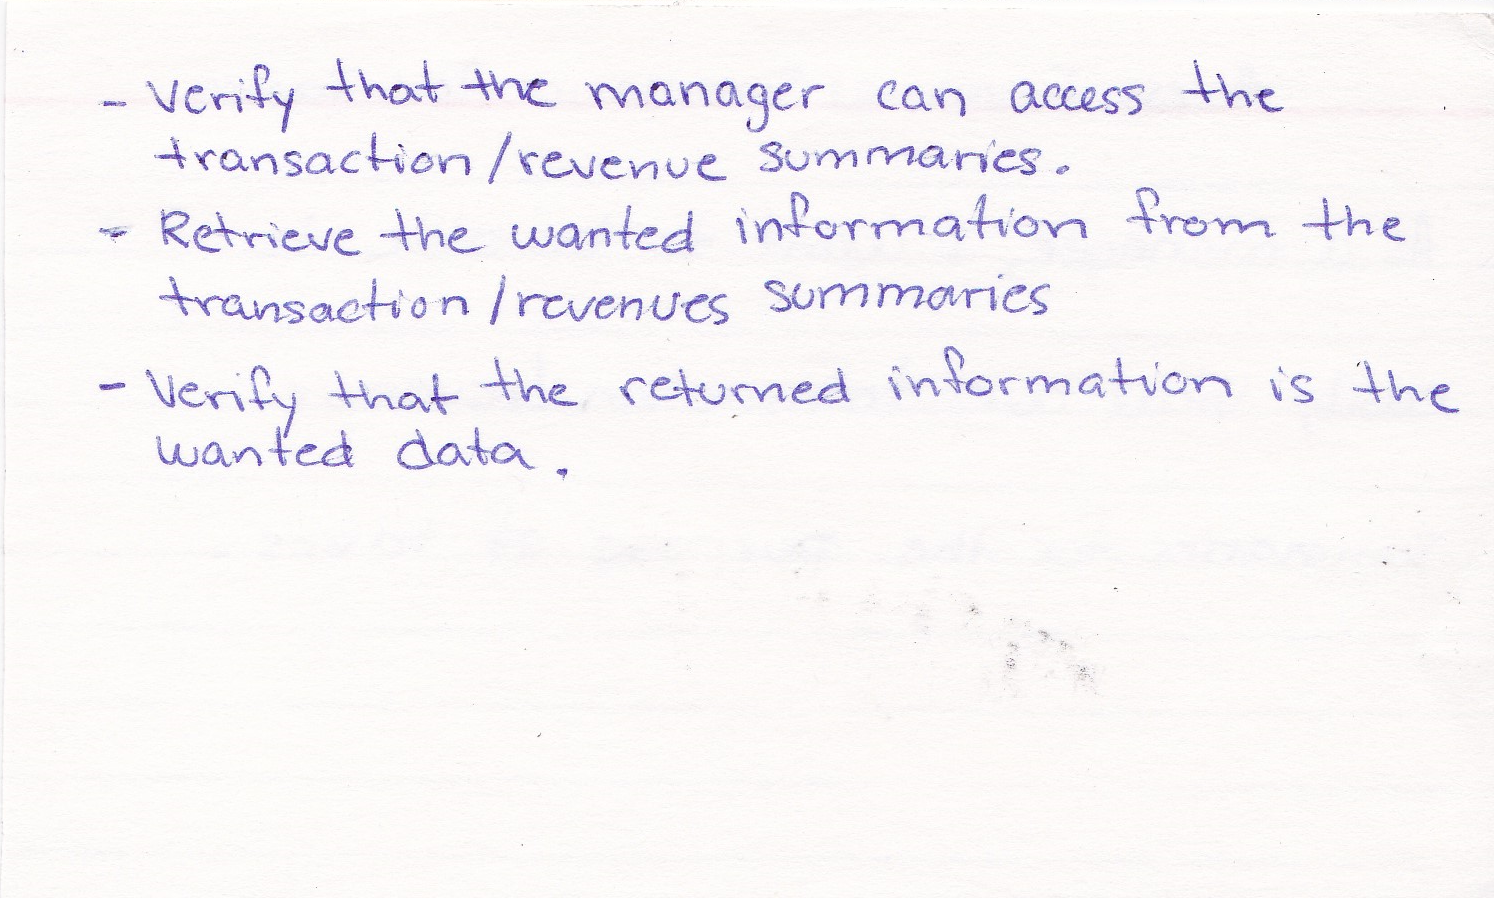 - Verify that the manager can access the
transaction/revenue summaries.
- Retrieve the wanted information from the
transaction/revenues summaries
- Verify that the returned information is the
wanted data.